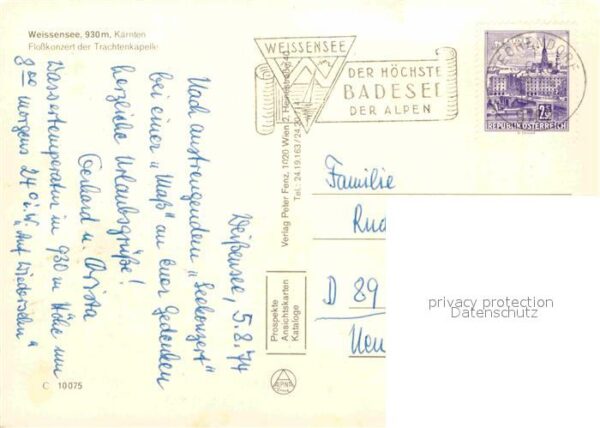 Weissensee, 930 m, Kärnten
Floßkonzert der Trachtenkapelle
Weißensee, 5.8.74
Nach anstrengendem „Seekonzert"
bei einer „Maß" an Euer Gedenken
herzliche Urlaubsgrüße!
Gerhard u. Christa
Wassertemperatur in 930 m Höhe um
8 00 morgens 24°
„Auf Wiedersehen"
C 10075
Verlag Peter Fenz, 1020 Wien 2,
Tel. 24 19 163/24
Prospekte
Ansichtskarten
Kataloge
WEISSENSEE
DER HÖCHSTE
BADESEE
DER ALPEN
REPUBLIK ÖSTERREICH
Familie
Rud
D 89
Neu
privacy protection
Datenschutz